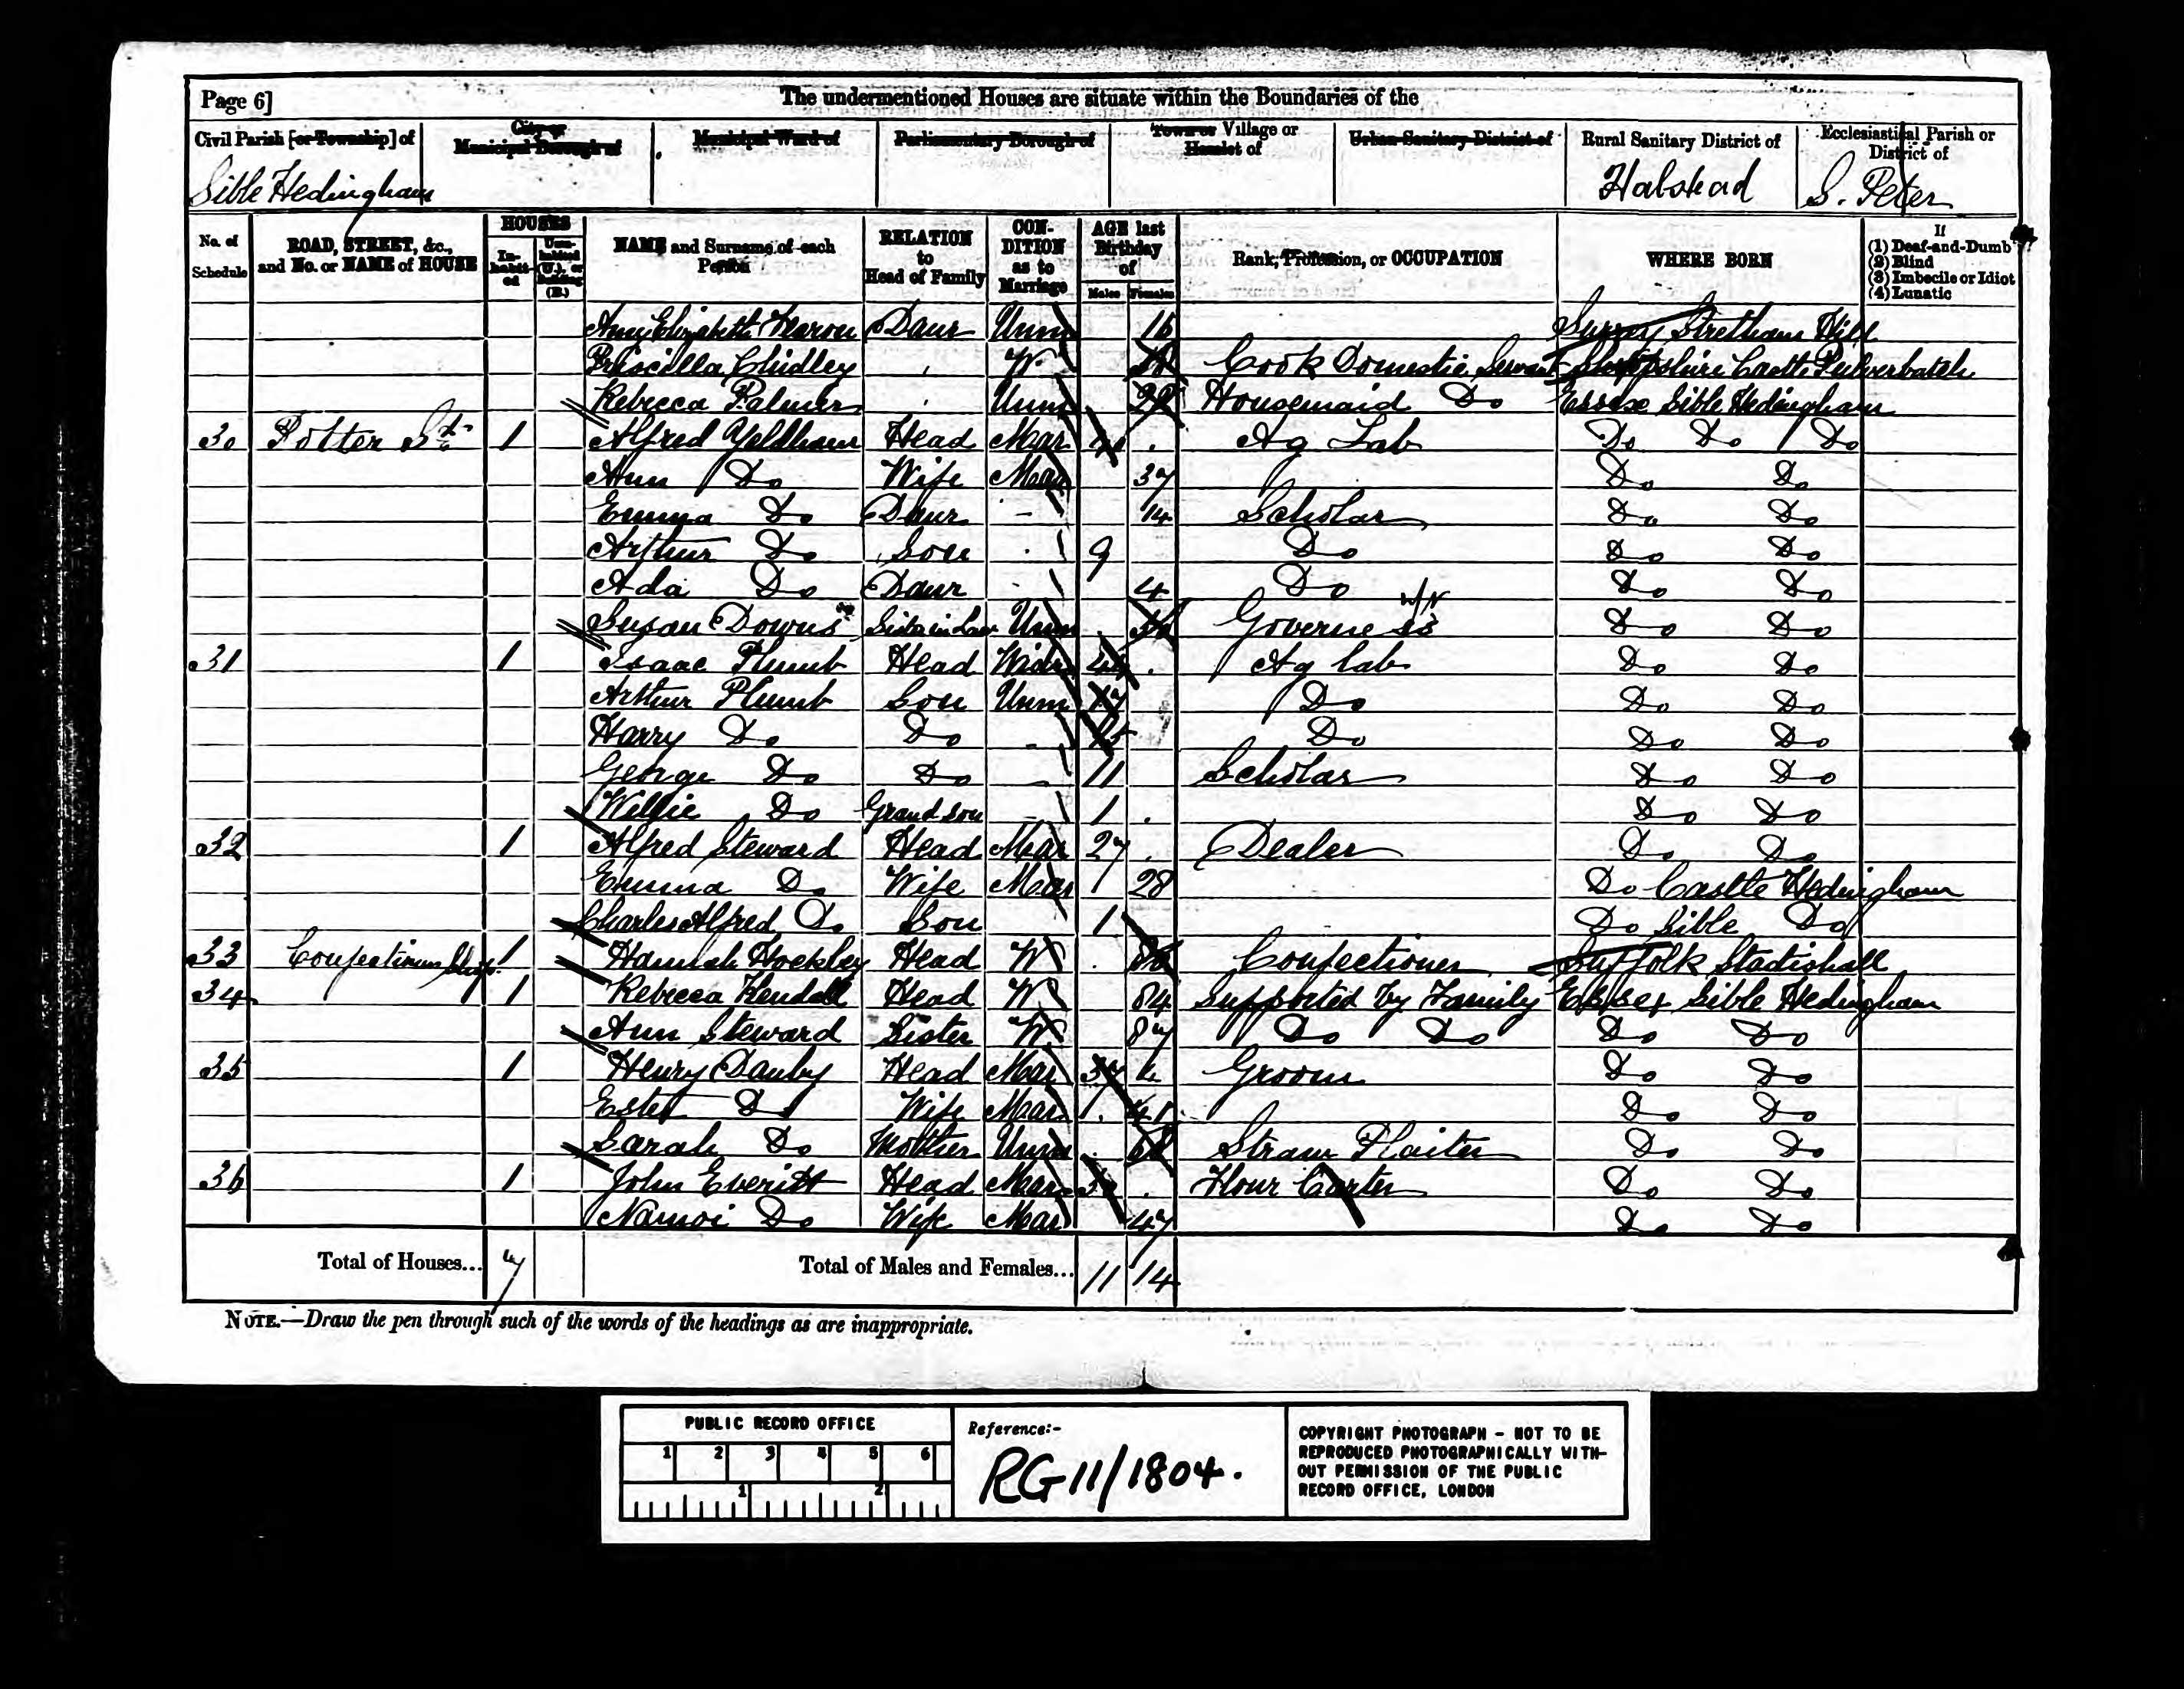 Page 6]
The undermentioned Houses are situate within the Boundaries of the
Civil Parish [or Township] of
City or Municipal Borough of
Municipal Ward of
Parliamentary Borough of
Town or Village or Hamlet of
Urban Sanitary District of
Rural Sanitary District of
Ecclesiastical Parish or District of
Sible Hedingham
Halstead
S. Peter
No. of Schedule
ROAD, STREET, &c., and No. or NAME of HOUSE
HOUSES
In-habit-ed
Unin-habited (U.), or Building (B.)
NAME and Surname of each Person
RELATION to Head of Family
CON-DITION as to Marriage
AGE last Birthday of
Males
Females
Rank, Profession, or OCCUPATION
WHERE BORN
If
(1) Deaf-and-Dumb
(2) Blind
(3) Imbecile or Idiot
(4) Lunatic
Amy Elizabeth Daur Unm 16 Surrey Stretham Hill
Priscilla Chidley W Cook Domestic Servant Shropshire Castle Pulverbatch
Rebecca Palmer Unm Housemaid Do Essex Sible Hedingham
30 Potter St 1 Alfred Yeldham Head Mar Ag Lab Do Do Do
Ann Do Wife Mar 37 Do Do
Emma Do Daur - 14 Scholar Do Do
Arthur Do Son 9 Do Do Do
Ada Do Daur 4 Do Do Do
Susan Downs Sister in Law Unm Governess Do Do
31 1 Isaac Plumb Head Widr Ag lab Do Do
Arthur Plumb Son Unm 17 Do Do Do
Harry Do Do - 15 Do Do Do
George Do Do - 11 Scholar Do Do
Willie Do Grand son - 1 Do Do
32 1 Alfred Steward Head Mar 27 Dealer Do Do
Emma Do Wife Mar 28 Do Castle Hedingham
Charles Alfred Do Son 1 Do Sible Do
33 Confectioners Shop 1 Hannah Hockley Head W Confectioner Suffolk Stadishall
34 1 Rebecca Kendall Head W 84 Supported by Family Essex Sible Hedingham
Ann Steward Sister W 87 Do Do Do Do
35 1 Henry Danby Head Mar 37 Groom Do Do
Ester Do Wife Mar 41 Do Do
Sarah Do Mother Unm 68 Straw Plaiter Do Do
36 1 John Everitt Head Mar Flour Carter Do Do
Namoi Do Wife Mar 47 Do Do
Total of Houses... 7
Total of Males and Females... 11 14
NOTE.—Draw the pen through such of the words of the headings as are inappropriate.
PUBLIC RECORD OFFICE
1 2 3 4 5 6
1 2
Reference:-
RG 11/1804.
COPYRIGHT PHOTOGRAPH - NOT TO BE
REPRODUCED PHOTOGRAPHICALLY WITH-
OUT PERMISSION OF THE PUBLIC
RECORD OFFICE, LONDON